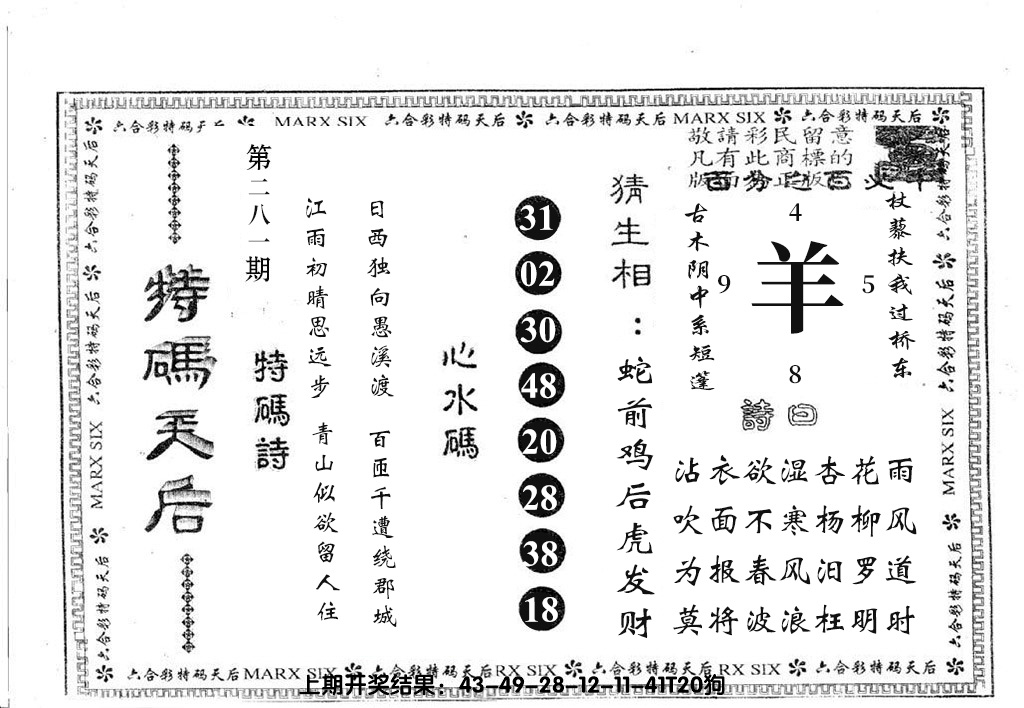 六合彩特码天后 MARX SIX 六合彩特码天后 六合彩特码天后 MARX SIX 六合彩特码天后
敬請彩民留意
凡有此商標的
杖藜扶我过桥东
古木阴中系短蓬
4
9 羊 5
8
詩曰
沾衣欲湿杏花雨
吹面不寒杨柳风
为报春风汨罗道
莫将波浪枉明时
猜生相：蛇前鸡后虎发财
31
02
30
48
20
28
38
18
心水碼
日西独向愚溪渡 百匝千遭绕郡城
江雨初晴思远步 青山似欲留人住
特碼詩
第二八一期
特碼天后
六合彩特码天后 六合彩特码天后 MARX SIX 六合彩特码天后
六合彩特码天后 六合彩特码天后 MARX SIX 六合彩特码天后
六合彩特码天后 MARX SIX 六合彩特码天后 RX SIX 六合彩特码天后 RX SIX 六合彩特码天后
上期开奖结果：43-49-28-12-11-41T20狗